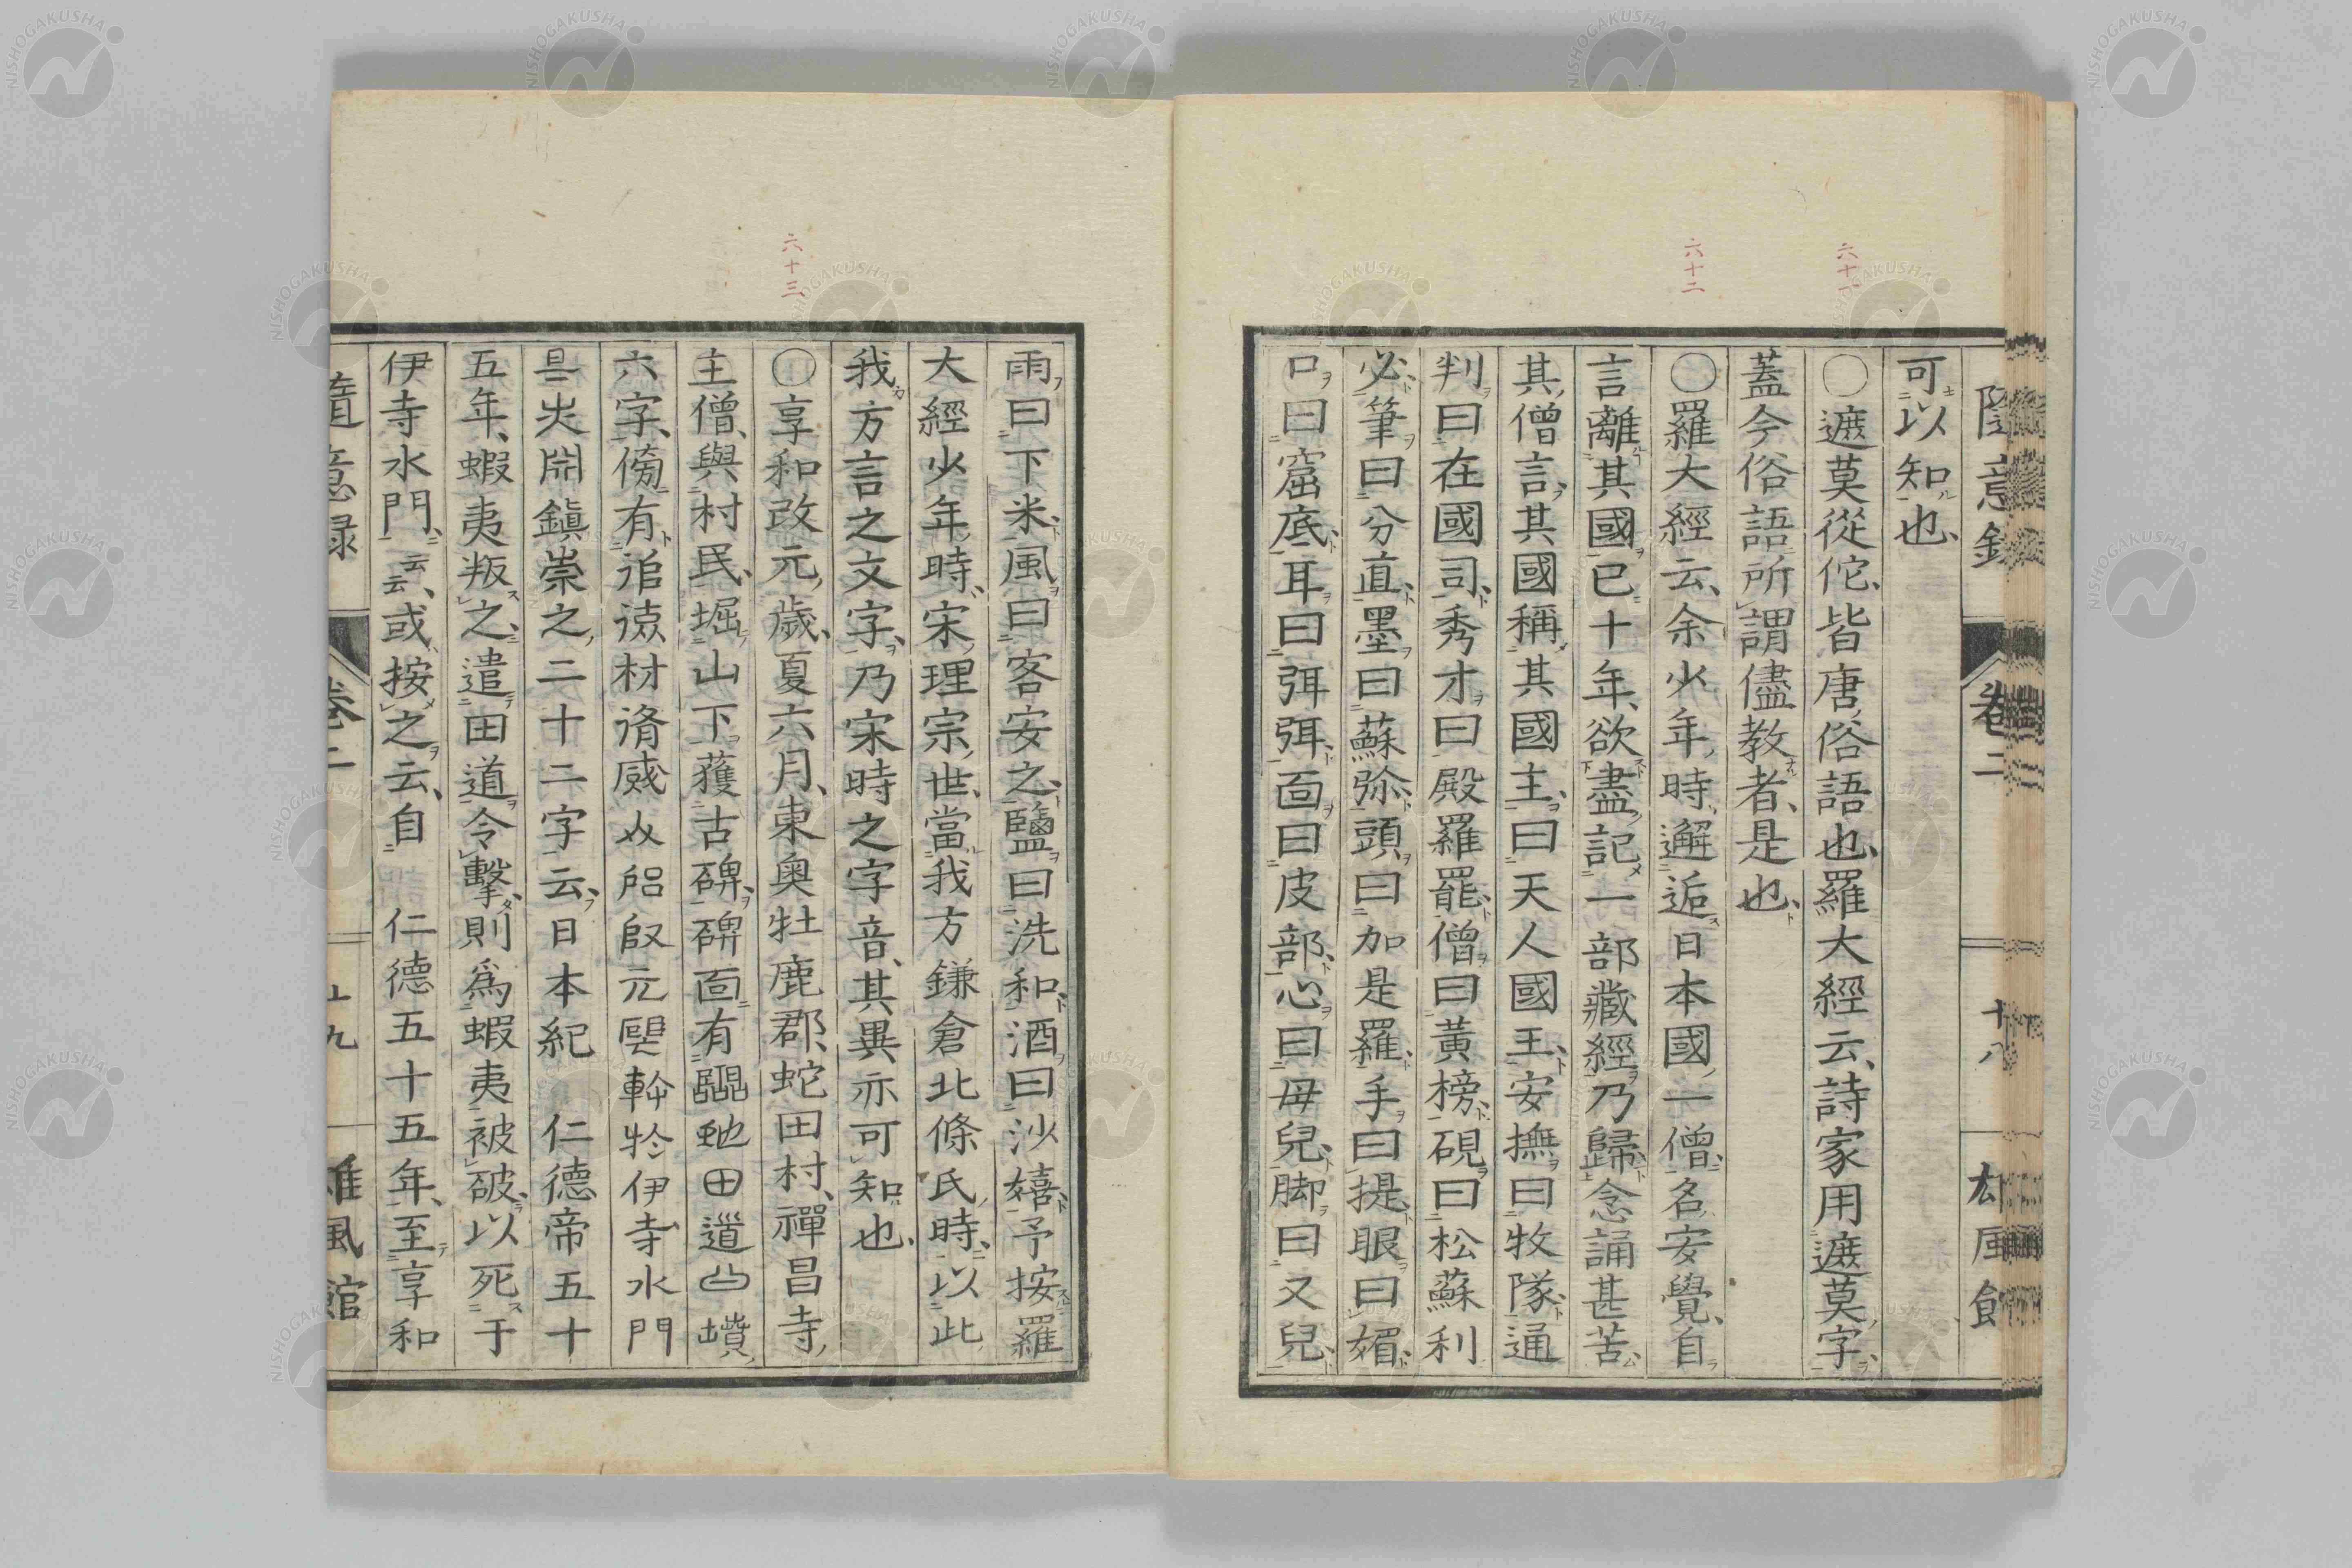 六十一
六十二
隨意錄 卷二 十八 雄風館
可以知也
〇遮莫從佗皆唐俗語也羅大經云詩家用遮莫字
蓋今俗語所謂儘教者是也
〇羅大經云余少年時邂逅日本國一僧名安覺自
言離其國已十年欲盡記一部藏經乃歸念誦甚苦
其僧言其國稱其國主曰天人國王安撫曰牧隊通
判曰在國司秀才曰殿羅罷僧曰黃榜硯曰松蘇利
必筆曰分直墨曰蘇弥頭曰加是羅手曰提眼曰媚
口曰窟底耳曰弭弭面曰皮部心曰母兒脚曰又兒
六十三
雨曰下米風曰客安之鹽曰洗和酒曰沙嬉予按羅
大經少年時宋理宗世當我方鎌倉北條氏時以此
我方言之文字乃宋時之字音其異亦可知也
〇享和改元歲夏六月東奧牡鹿郡蛇田村禪昌寺
主僧與村民堀山下獲古碑碑面有 虵田道公墳
六字傍有 伊寺水門
二十二字云日本紀 仁德帝五十
五年蝦夷叛之遣田道令擊則爲蝦夷被破以死于
伊寺水門云云或按之云自 仁德五十五年至享和
隨意録 卷二 十九 雄風館
NISHOGAKUSHA